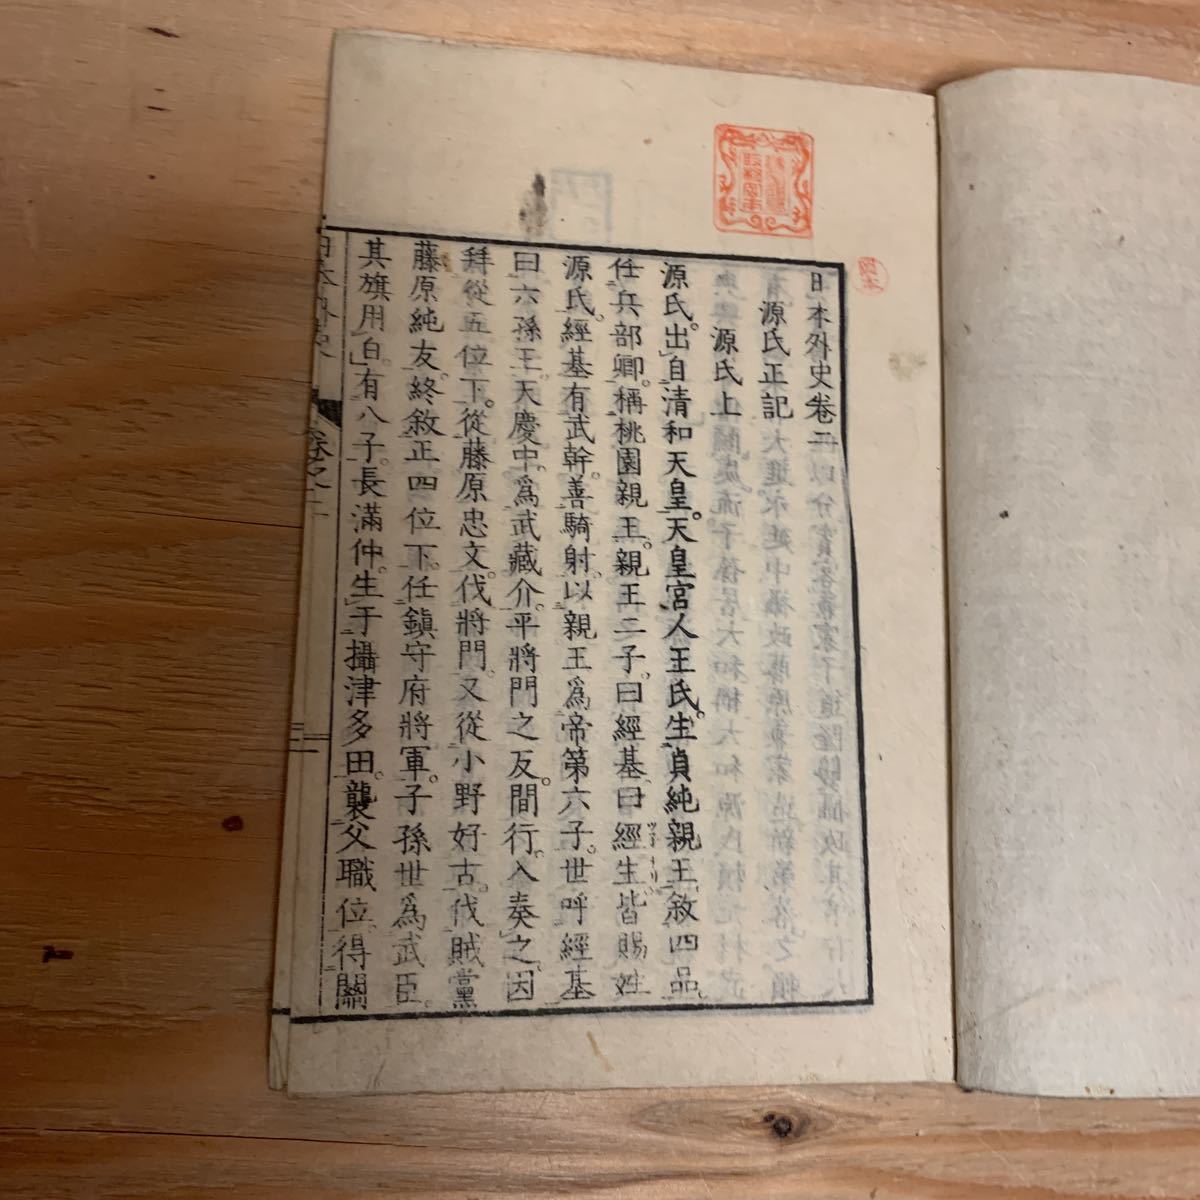 日本外史卷二
源氏正記
源氏上
源氏。出自清和天皇。天皇宮人王氏。生貞純親王。敘四品。
任兵部卿。稱桃園親王。親王二子。曰經基。曰經生。皆賜姓
源氏。經基有武幹。善騎射。以親王爲帝第六子。世呼經基
曰六孫王。天慶中。爲武藏介。平將門之反。間行。入奏之。因
拜從五位下。從藤原忠文。伐將門。又從小野好古。伐賊黨
藤原純友。終敘正四位下。任鎭守府將軍。子孫世爲武臣。
其旗用白。有八子。長滿仲。生于攝津多田。襲父職位。得關
日本外史
卷之二